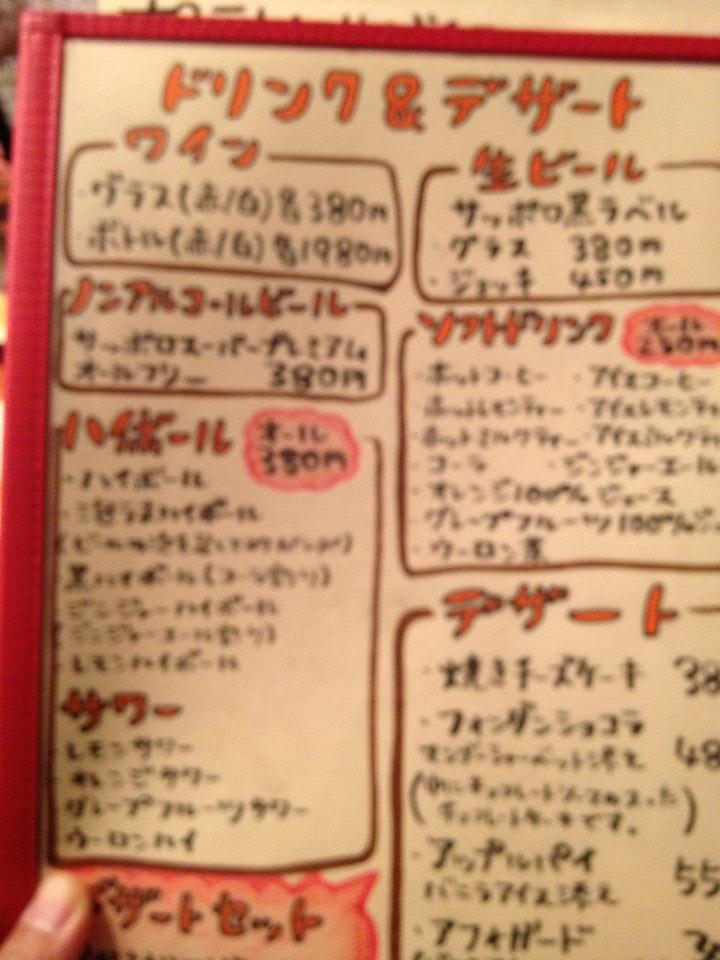 ドリンク & デザート
ワイン
・グラス(赤/白)各380円
・ボトル(赤/白)各1980円
ノンアルコールビール
サッポロスーパープレミアム
オールフリー 380円
ハイボール
オール
380円
・ハイボール
黒ハイボール(コーラ割り)
ジンジャーハイボール
(ジンジャーエール割り)
レモンハイボール
サワー
レモンサワー
オレンジサワー
グレープフルーツサワー
ウーロンハイ
デザートセット
生ビール
サッポロ黒ラベル
・グラス 380円
・ジョッキ 450円
ソフトドリンク
オール
・ホットコーヒー ・アイスコーヒー
・ホットレモンティー ・アイスレモンティ
・ホットミルクティー ・アイスミルクティ
・コーラ ・ジンジャーエール
・オレンジ100%ジュース
・グレープフルーツ100%
・ウーロン茶
デザート
・焼きチーズケーキ 38
・フォンダンショコラ
マンゴーシャーベット添え 48
(中にチョコレートソースの入った
チョコレートケーキです。)
・アップルパイ
バニラアイス添え 55
・アフォガード